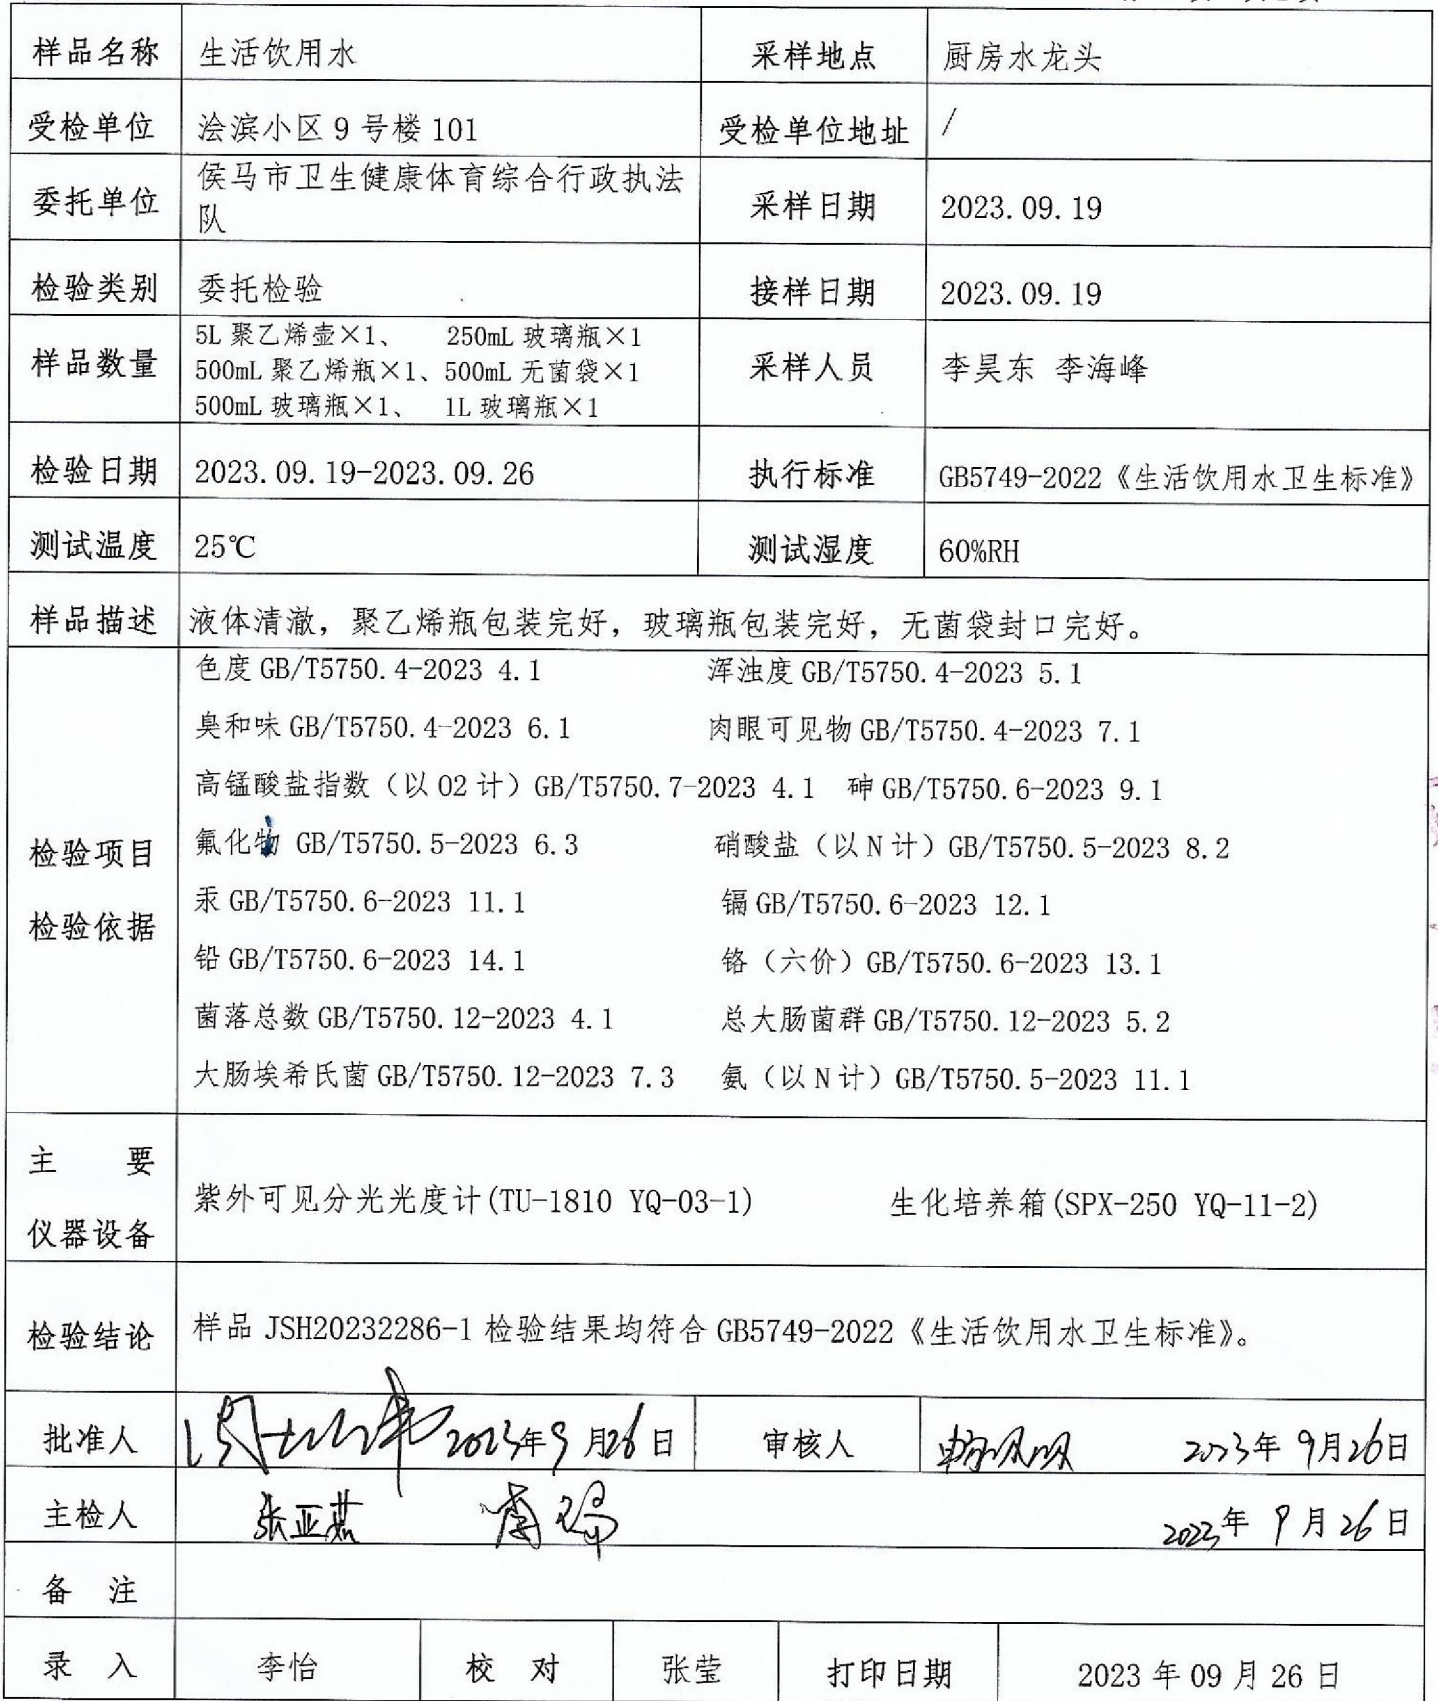 样品名称 生活饮用水 采样地点 厨房水龙头
受检单位 浍滨小区9号楼101 受检单位地址 /
委托单位 侯马市卫生健康体育综合行政执法队 采样日期 2023.09.19
检验类别 委托检验 接样日期 2023.09.19
样品数量 5L聚乙烯壶×1、 250mL玻璃瓶×1
500mL聚乙烯瓶×1、500mL无菌袋×1
500mL玻璃瓶×1、 1L玻璃瓶×1
采样人员 李昊东 李海峰
检验日期 2023.09.19-2023.09.26 执行标准 GB5749-2022《生活饮用水卫生标准》
测试温度 25℃ 测试湿度 60%RH
样品描述 液体清澈，聚乙烯瓶包装完好，玻璃瓶包装完好，无菌袋封口完好。
检验项目
检验依据
色度GB/T5750.4-2023 4.1 浑浊度GB/T5750.4-2023 5.1
臭和味GB/T5750.4-2023 6.1 肉眼可见物GB/T5750.4-2023 7.1
高锰酸盐指数（以O2计）GB/T5750.7-2023 4.1 砷GB/T5750.6-2023 9.1
氟化物 GB/T5750.5-2023 6.3 硝酸盐（以N计）GB/T5750.5-2023 8.2
汞GB/T5750.6-2023 11.1 镉GB/T5750.6-2023 12.1
铅GB/T5750.6-2023 14.1 铬（六价）GB/T5750.6-2023 13.1
菌落总数GB/T5750.12-2023 4.1 总大肠菌群GB/T5750.12-2023 5.2
大肠埃希氏菌GB/T5750.12-2023 7.3 氨（以N计）GB/T5750.5-2023 11.1
主 要
仪器设备
紫外可见分光光度计(TU-1810 YQ-03-1) 生化培养箱(SPX-250 YQ-11-2)
检验结论 样品JSH20232286-1检验结果均符合GB5749-2022《生活饮用水卫生标准》。
批准人 2023年9月26日 审核人 2023年9月26日
主检人 张亚燕 2023年9月26日
备 注
录 入 李怡 校 对 张莹 打印日期 2023年09月26日